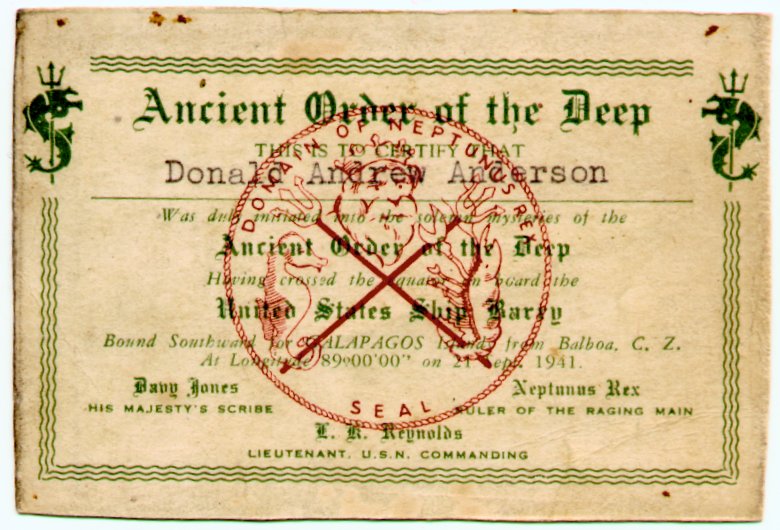 Ancient Order of the Deep
THIS IS TO CERTIFY THAT
Donald Andrew Anderson
Was duly initiated into the solemn mysteries of the
Ancient Order of the Deep
Having crossed the Equator on board the
United States Ship Barry
Bound Southward for GALAPAGOS Islands from Balboa, C. Z.
At Longitude 89°00'00" on 21 Sept. 1941.
Davy Jones
HIS MAJESTY'S SCRIBE
Neptunus Rex
RULER OF THE RAGING MAIN
L. K. Reynolds
LIEUTENANT, U.S.N. COMMANDING
DOMAIN OF NEPTUNUS REX
SEAL